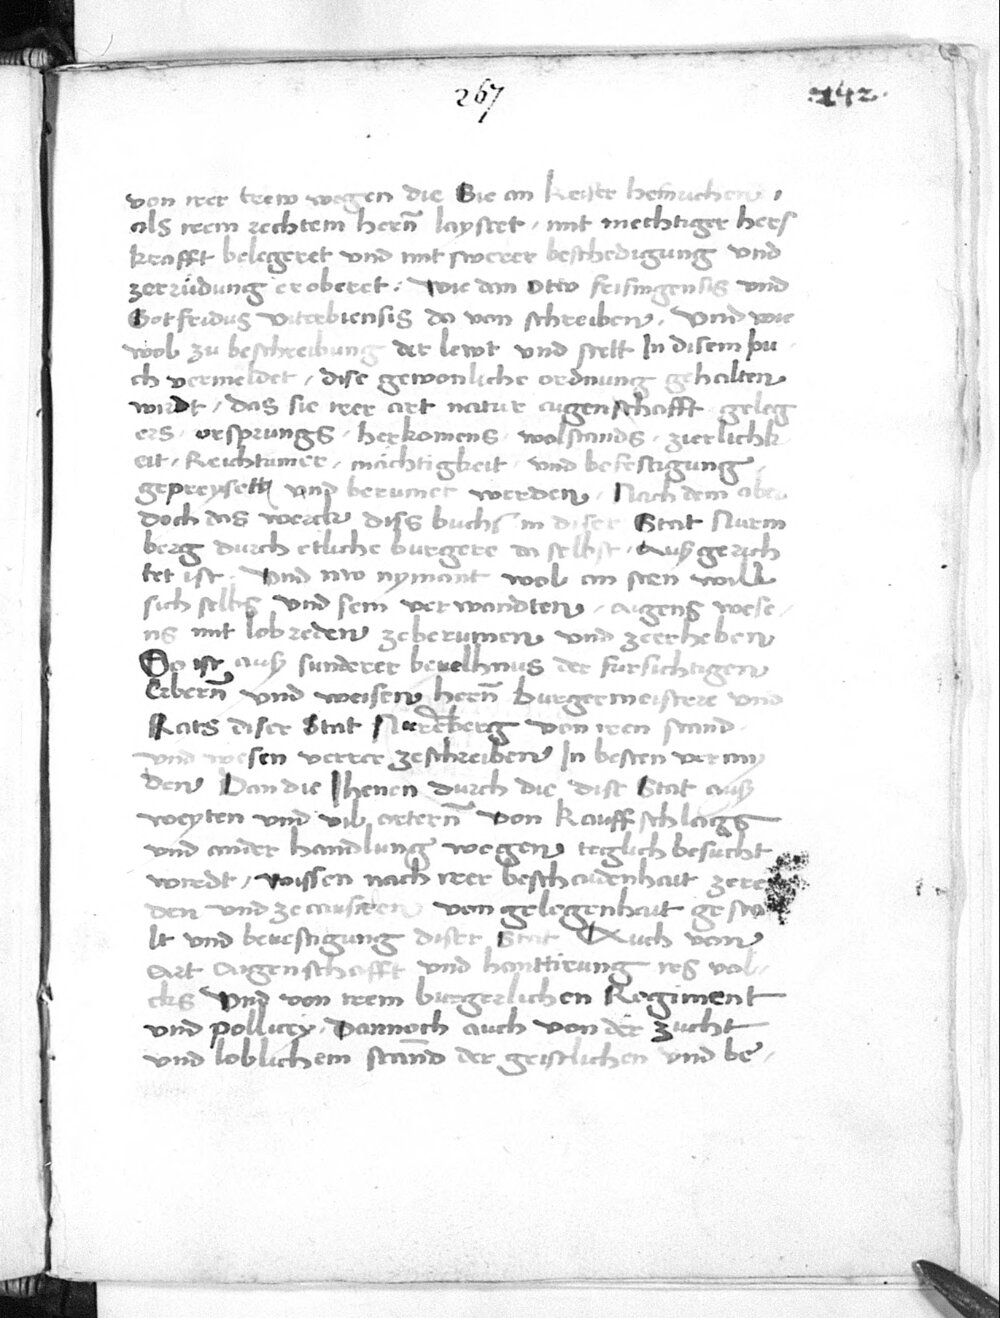 267
242.
von irer trew wegen die Sie an Keiser heinrichen,
als irem rechtem hern̄ laystet, mit mechtiger hers
krafft belegeret vnd mit swerer beschedigung vnd
zerrüdung eroberet. Wie dan Otto frisingensis vnd
Gotfridus viterbiensis da von schreiben. Vnd wie
wol zu beschreibung der lewt vnd stett In disem pu
ch vermeldet, dise gewonliche ordnung gehalten
wirdt, das sie irer art natur augenschafft geleg
ers, vrsprungs, herkomens, wolstands, zierlichk
eit, Reichtumer, mächtigkeit, vnd befestigung,
gepreysett vnd berumet werden, Nach dem aber
doch das werck diss buchs in diser Stat Nurm
berg durch etliche burgere da selbst, Auß gerich
tet ist. Vnd nw nymant wol an sten will
sich selbs vnd sein verwandten, augens wese
ns mit lobreden zeberumen vnd zeerheben
So ist auß sunderer beuelhnus der fursichtigen
Erbern̄ vnd weisen hern̄ burgermeistere vnd
Rats diser Stat Nuremberg von iren stand
vnd wesen verrer zeschreiben In besten vermy
den Dan die Jhenen durch die dise Stat auß
weyten vnd vil ortern̄ von Kauffschlags
vnd ander handlung wegen teglich besucht
wirdt, wissen nach irer beschaidenhait zere
den vnd ze von gelegenhait gesta
lt vnd beuestigung diser Stat Auch von
Art augenschafft vnd hanttirung irs vol
cks Vnd von irem burgerlichen Regiment
vnd pollicey. Dannoch auch von der zucht
vnd loblichem stan̄d der geistlichen vnd be,